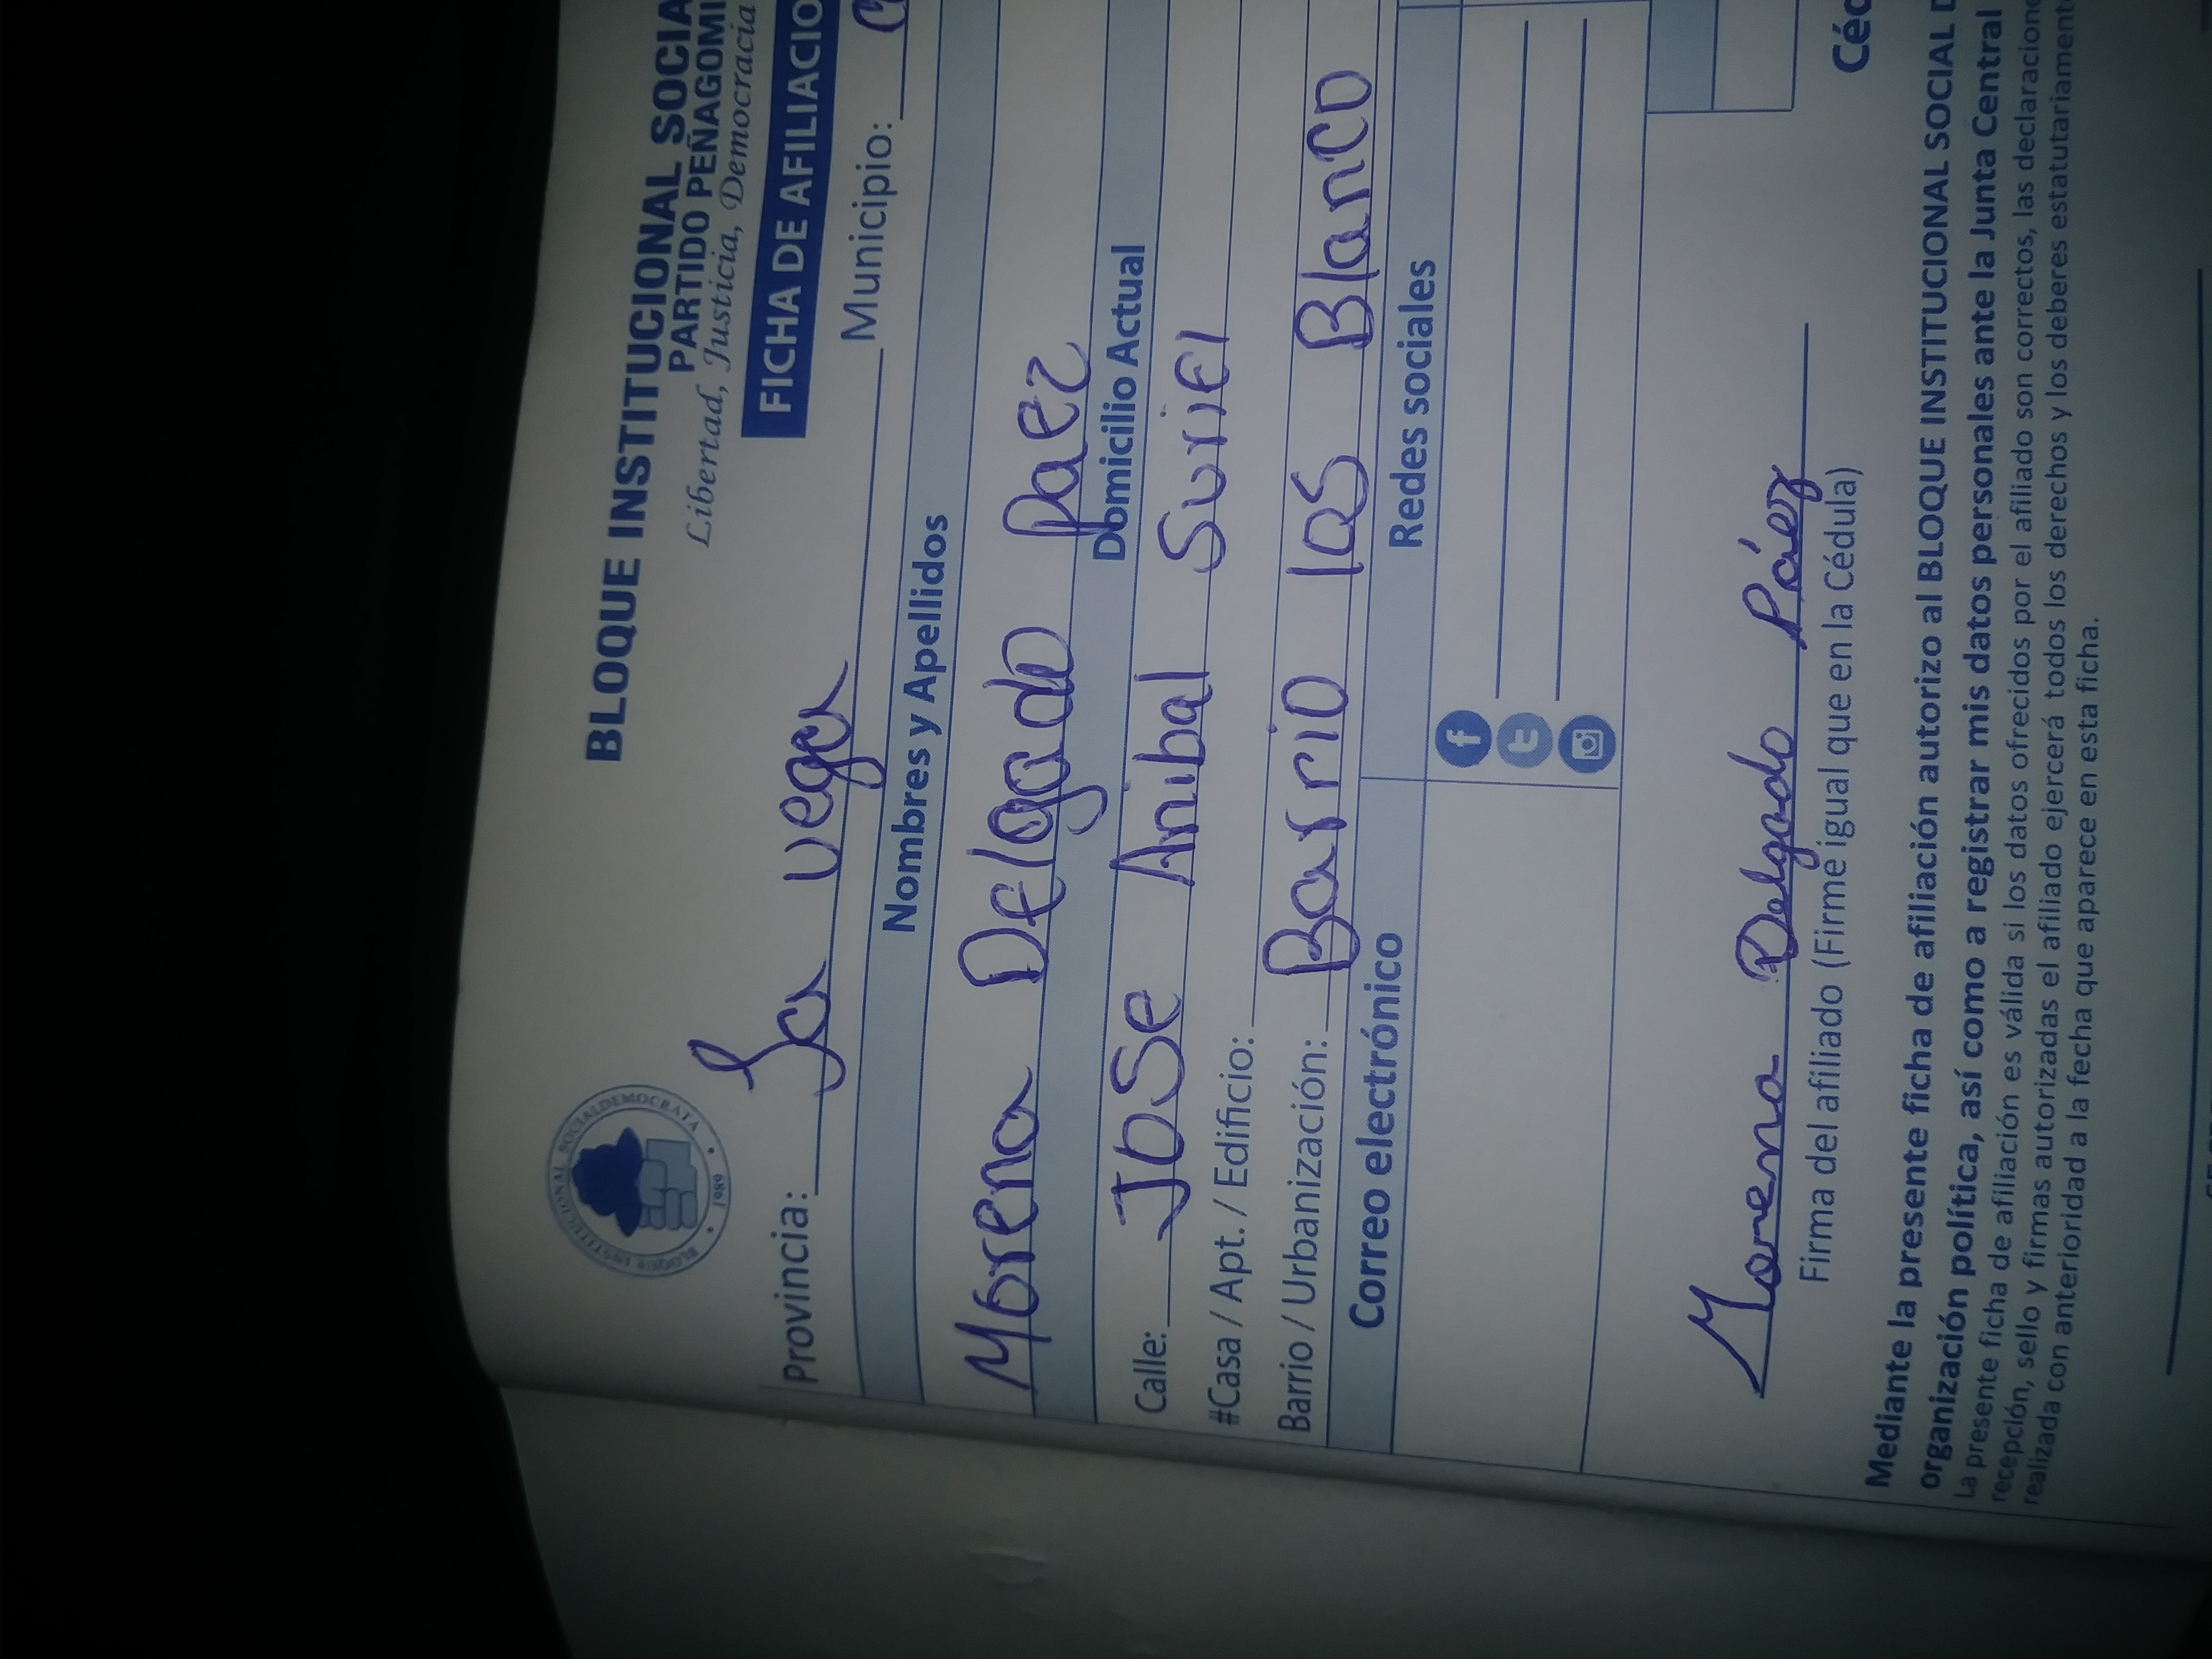 BLOQUE INSTITUCIONAL SOCIA
PARTIDO PEÑAGOMI
Libertad, Justicia, Democracia
BLOQUE INSTITUCIONAL SOCIALDEMOCRATA
1989
FICHA DE AFILIACIO
Provincia: La vega Municipio:
Nombres y Apellidos
Morena Delgado paez
Domicilio Actual
Calle: Jose Anibal Suriel
#Casa / Apt. / Edificio:
Barrio / Urbanización: Barrio las Blanco
Correo electrónico Redes sociales
Morena Delgado Páez
Firma del afiliado (Firme igual que en la Cédula)
Céd
Mediante la presente ficha de afiliación autorizo al BLOQUE INSTITUCIONAL SOCIAL D
organización política, así como a registrar mis datos personales ante la Junta Central
La presente ficha de afiliación es válida si los datos ofrecidos por el afiliado son correctos, las declaracione
recepción, sello y firmas autorizadas el afiliado ejercerá todos los derechos y los deberes estatutariament
realizada con anterioridad a la fecha que aparece en esta ficha.